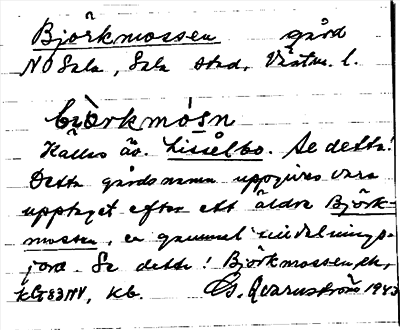 Björkmossen gård
NO Sala, Sala stad, Västm. l.
bjòrkmósn
Kallas äv. Lisselbo. Se detta!
Detta gårdsnamn uppgives vara
upptaget efter ett äldre Björk-
mossen, en gammal utdelnings-
jord. Se detta! Björkmossen,
kb. G. Qvarnström 1943